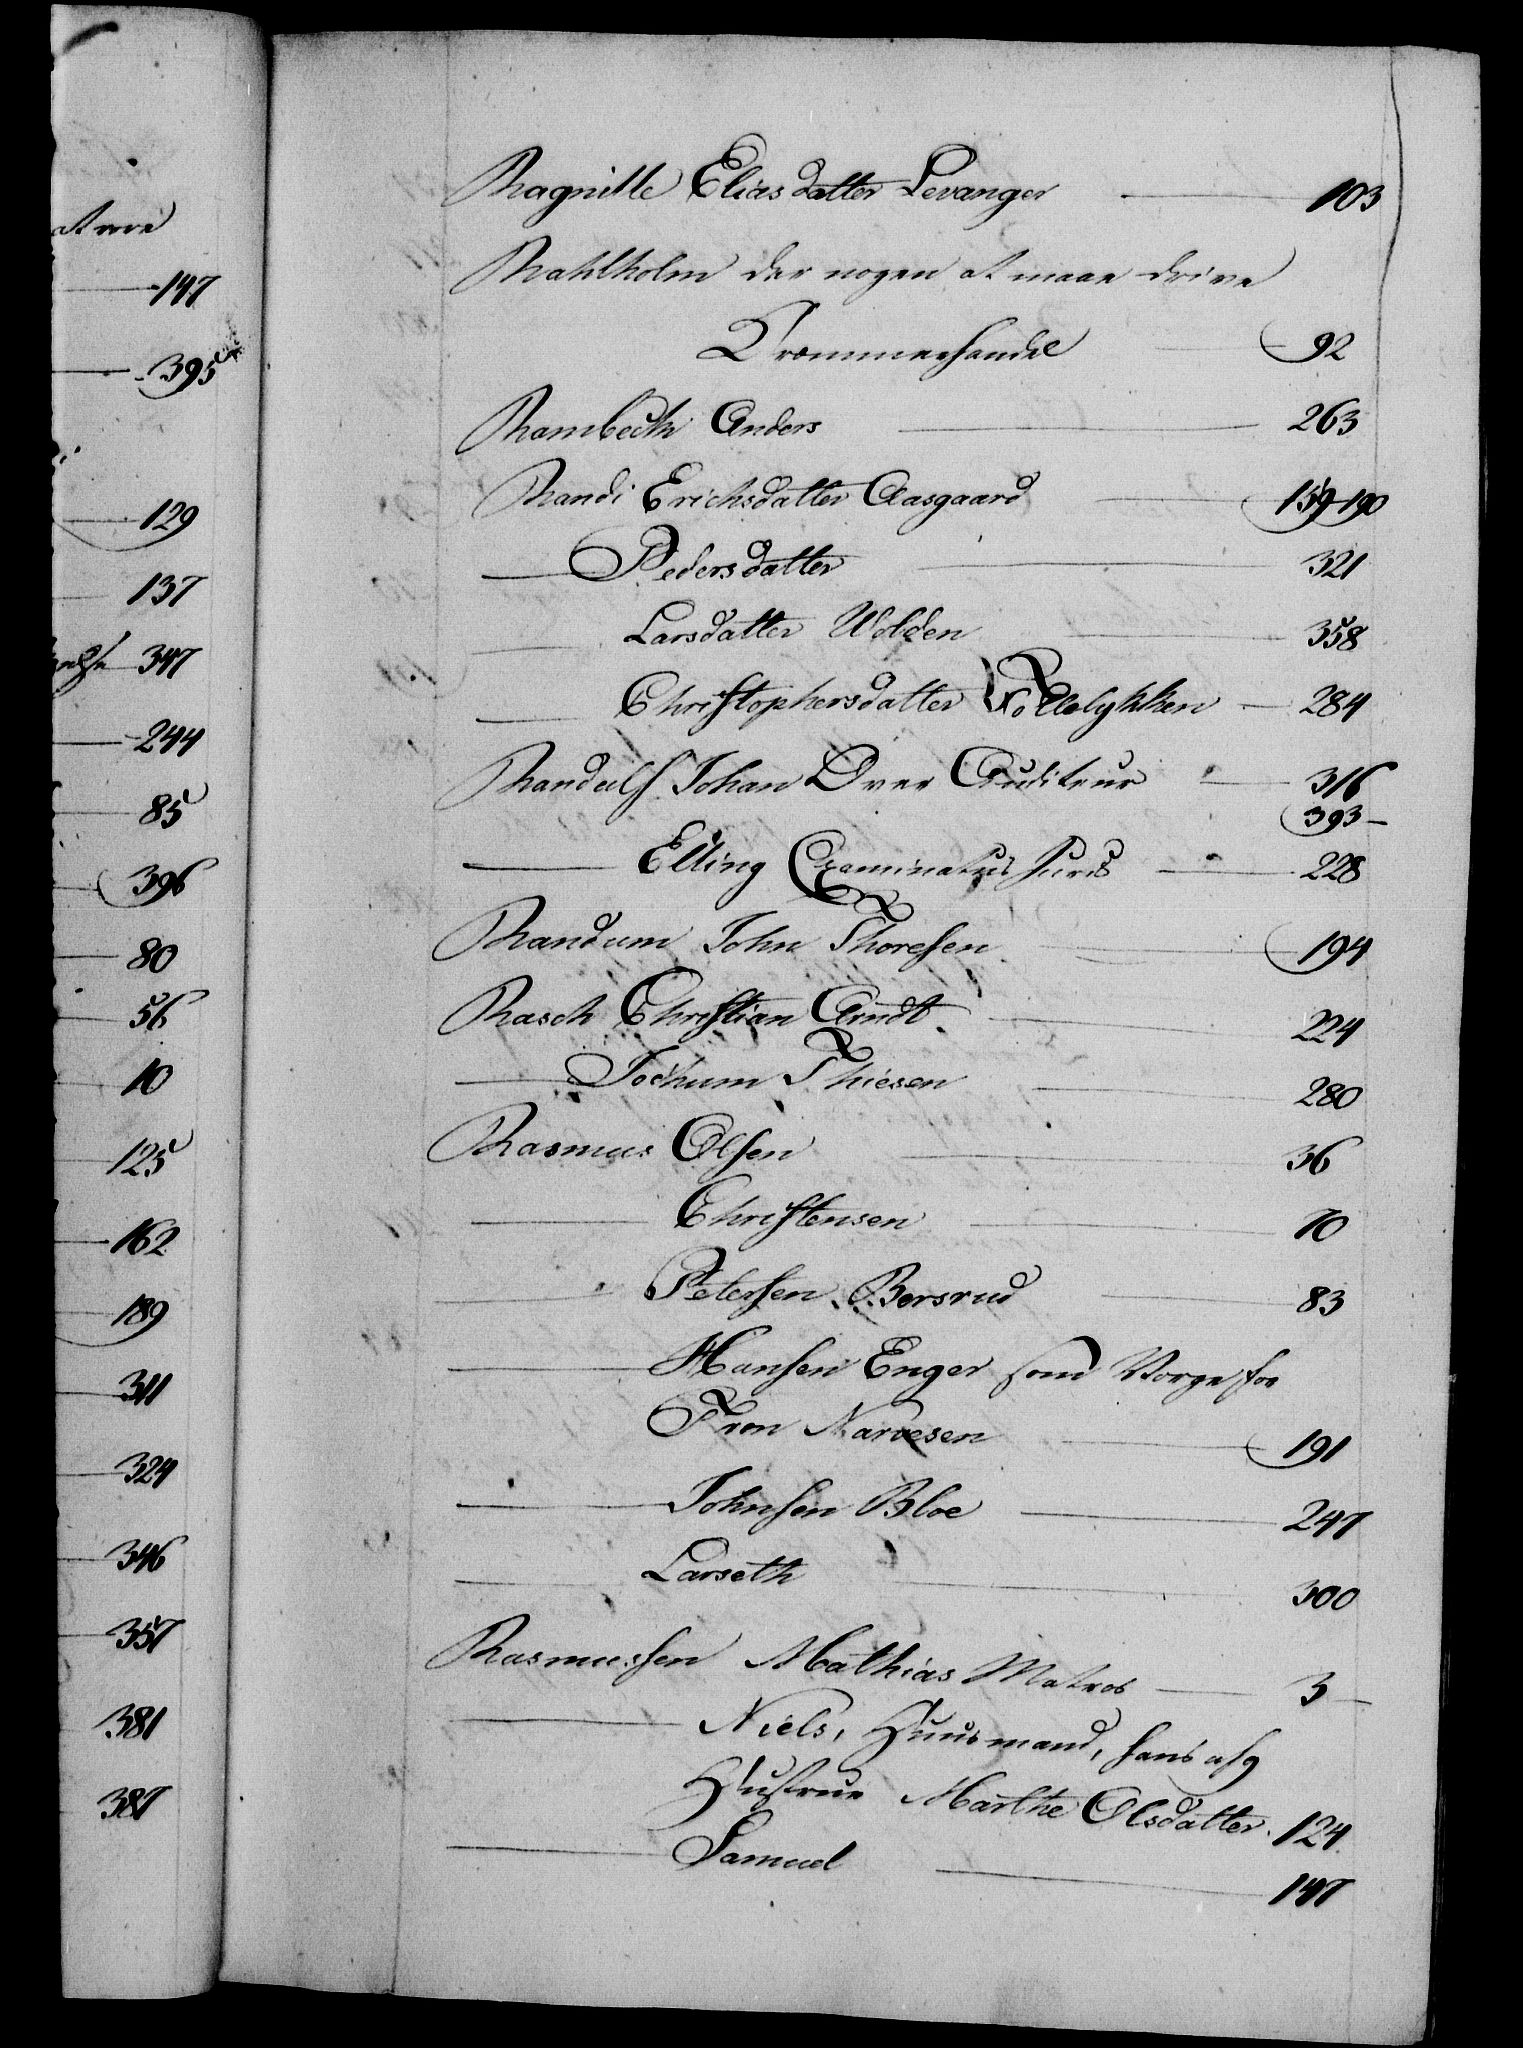 at være
147
395
129
137
347
244
85
396
80
56
10
125
162
189
311
324
346
357
381
387
Ragnille Eliasdatter Levanger 103
Rahlholm der nogen at maae drive
Trommehandel 92
Rambech Anders 263
Randi Erichsdatter Aasgaard 159-190
— Pedersdatter 321
— Larsdatter Wolden 358
— Christophersdatter Tollelykken — 284
Randulf Johan Over Auditeur — 316
393 —
— Elling Examinatus Juris — 228
Randum John Thoresen 194
Rasch Christian Arndt 224
— Jochum Thiesen 280
Rasmus Olsen 36
— Christensen 70
— Petersen Borsrud 83
— Hansen Enger som Vorge for
Tron Narvesen 191
— Johnsen Bloe 247
— Larseth 300
Rasmussen Mathias Matros — 3 —
— Niels, Huusmand, hans afg
Hustrue Marthe Olsdatter. 124
— Samuel 147